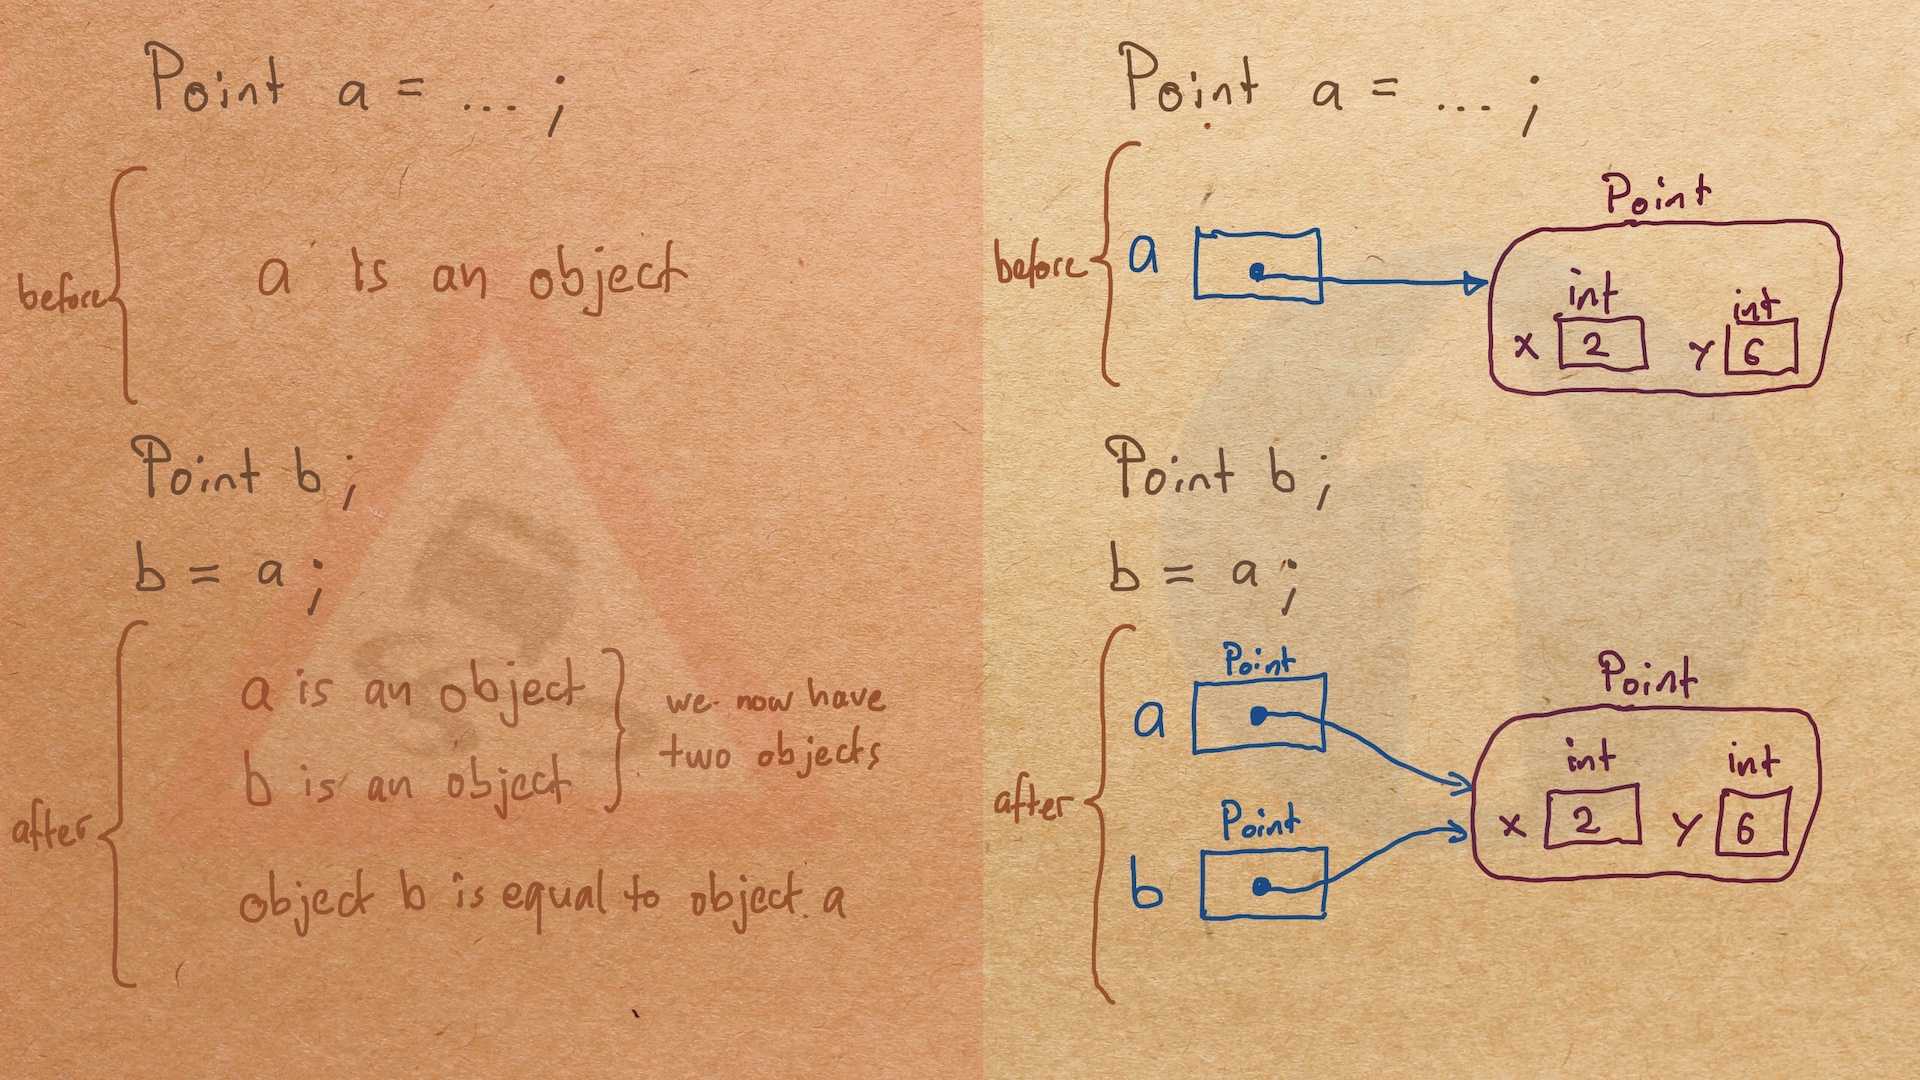 Point a = ... ;
before
a is an object
Point b ;
b = a ;
after
a is an object
b is an object
we now have
two objects
object b is equal to object a
Point a = ... ;
before
a
Point
int
int
x 2 y 6
Point b ;
b = a ;
after
Point
a
Point
b
Point
int int
x 2 y 6